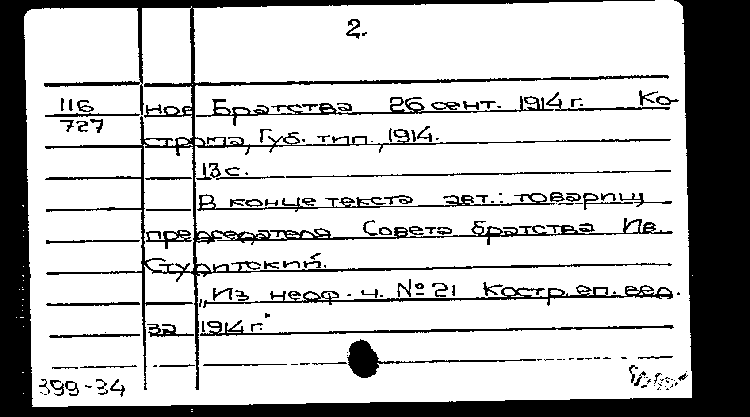 2.
116 ное Братства 26 сент. 1914 г. Ко-
727 строма, Губ. тип., 1914.
13 с.
В конце текста авт.: товарищ
председателя Совета братства Ив.
Студитский.
„Из неоф. ч. № 21 Костр. еп. вед.
за 1914 г."
399-34